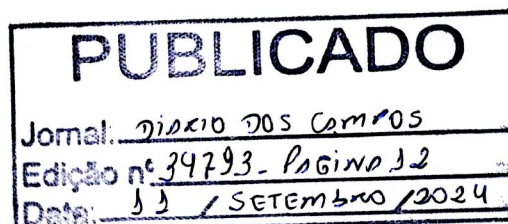 PUBLICADO
Jornal: DIÁRIO DOS CAMPOS
Edição nº 34793 - PAGINA 12
Data: 11 / SETEMBRO / 2024